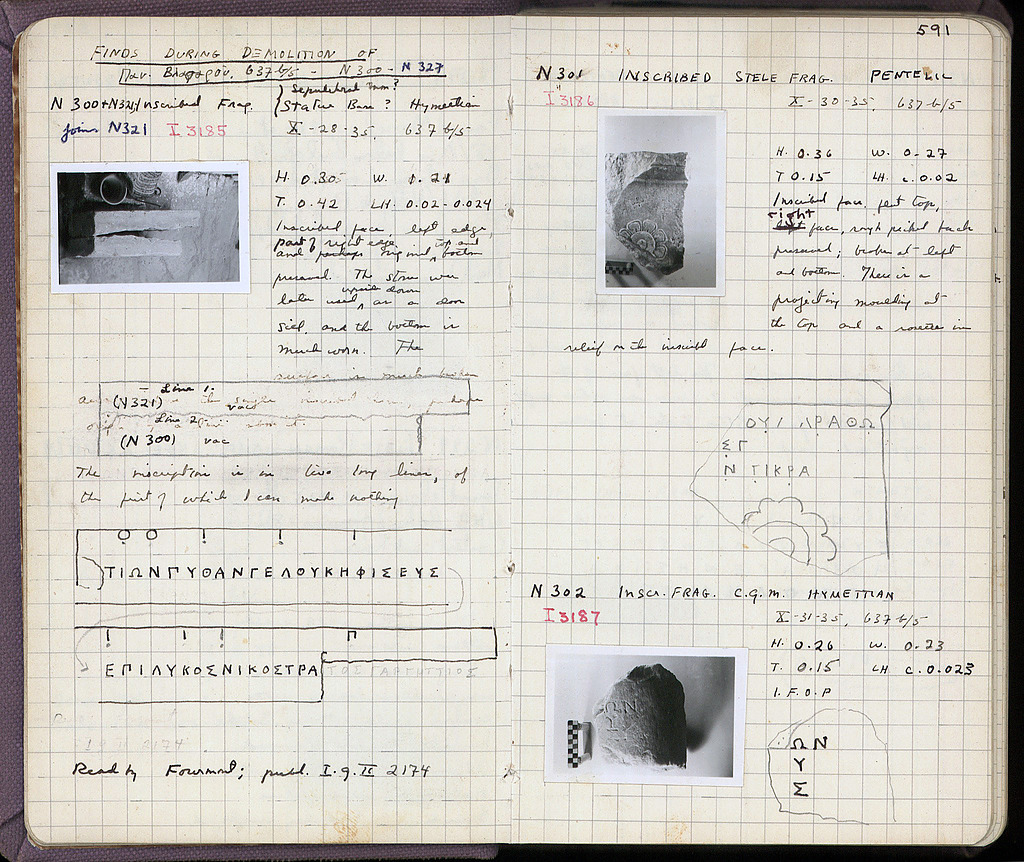 FINDS DURING DEMOLITION OF
637 b/5 - N 300 - N 327
N 300+N321 Inscribed Frag.
joins N321 I 3185
Statue Base? Hymettian
X-28-35, 637 b/5
H. 0.305 W. 1.21
T. 0.42 LH. 0.02-0.024
Inscribed face, left edge,
part of right edge,
and perhaps original top and bottom
preserved. The stone was
later used upside down as a door
sill, and the bottom is
much worn. The
surface is much broken
Line 1.
(N321) vac
Line 2
(N 300) vac
The inscription is in two long lines, of
the first of which I can make nothing
ΤΙΩΝΠΥΘΑΝΓΕΛΟΥΚΗΦΙΣΕΥΣ
ΕΠΙΛΥΚΟΣΝΙΚΟΣΤΡΑ
I G II 2174
Read by Fourmont; publ. I.G. II 2174
591
N 301 INSCRIBED STELE FRAG. PENTELIC
I 3186
X-30-35, 637-b/5
H. 0.36 W. 0.27
T 0.15 LH. c. 0.02
Inscribed face, part top,
right face, rough picked back
preserved; broken at left
and bottom. There is a
projecting moulding at
the top and a rosette in
relief on the inscribed face.
ΟΥΙ ΛΡΑΘΩ
ΣΓ
Ν ΤΙΚΡΑ
N 302 INSCR. FRAG. C.G.M. HYMETTIAN
I 3187
X-31-35, 637 b/5
H. 0.26 W. 0.23
T. 0.15 LH c. 0.023
I.F.O.P
ΩΝ
Υ
Σ